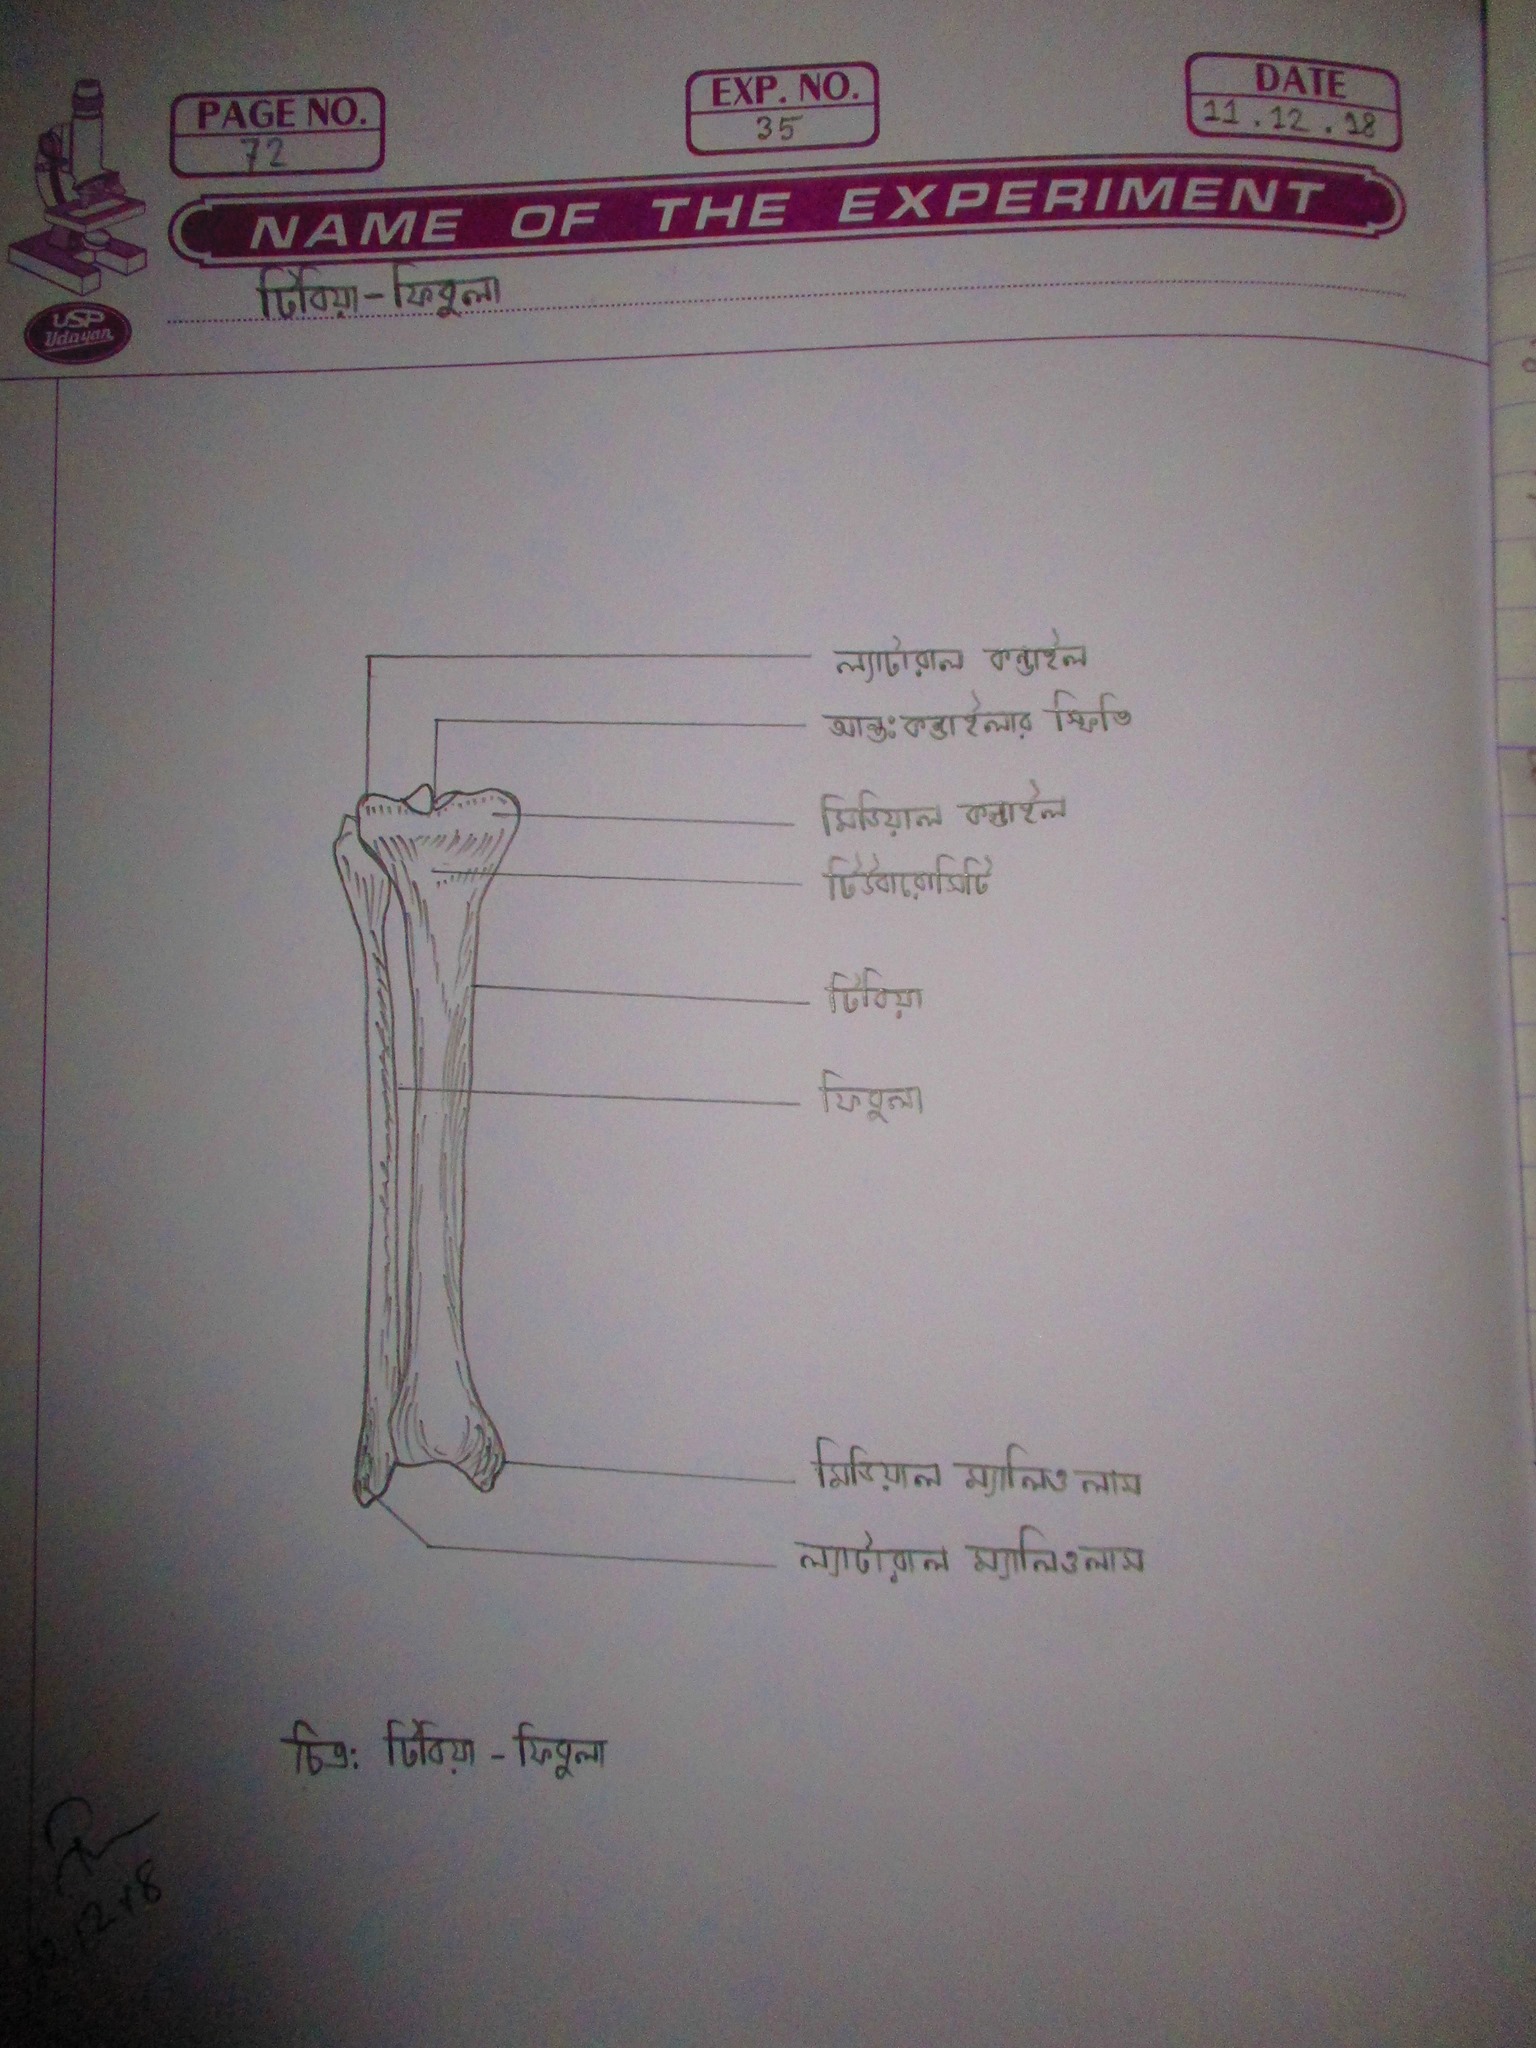 PAGE NO.
72
EXP. NO.
35
DATE
11.12.18
NAME OF THE EXPERIMENT
টিবিয়া-ফিবুলা
USP
Udayan
ল্যাটারাল কন্ডাইল
আন্তঃকন্ডাইলার স্ফিতি
মিডিয়াল কন্ডাইল
টিউবারোসিটি
টিবিয়া
ফিবুলা
মিডিয়াল ম্যালিওলাস
ল্যাটারাল ম্যালিওলাস
চিত্র: টিবিয়া - ফিবুলা